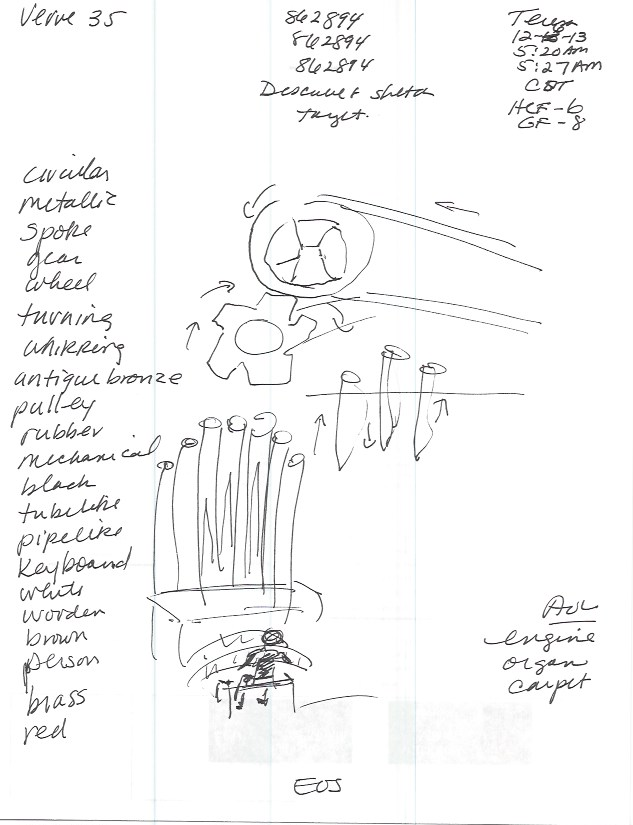 Verve 35
862894
862894
862894
Describe & sketch
target.
Teresa
12-13-13
5:20AM
5:27AM
CST
HCF-6
GF-8
circular
metallic
spoke
gear
wheel
turning
whirring
antique bronze
pulley
rubber
mechanical
black
tubelike
pipelike
keyboard
white
wooden
brown
person
brass
red
AOL
engine
organ
carpet
EOS